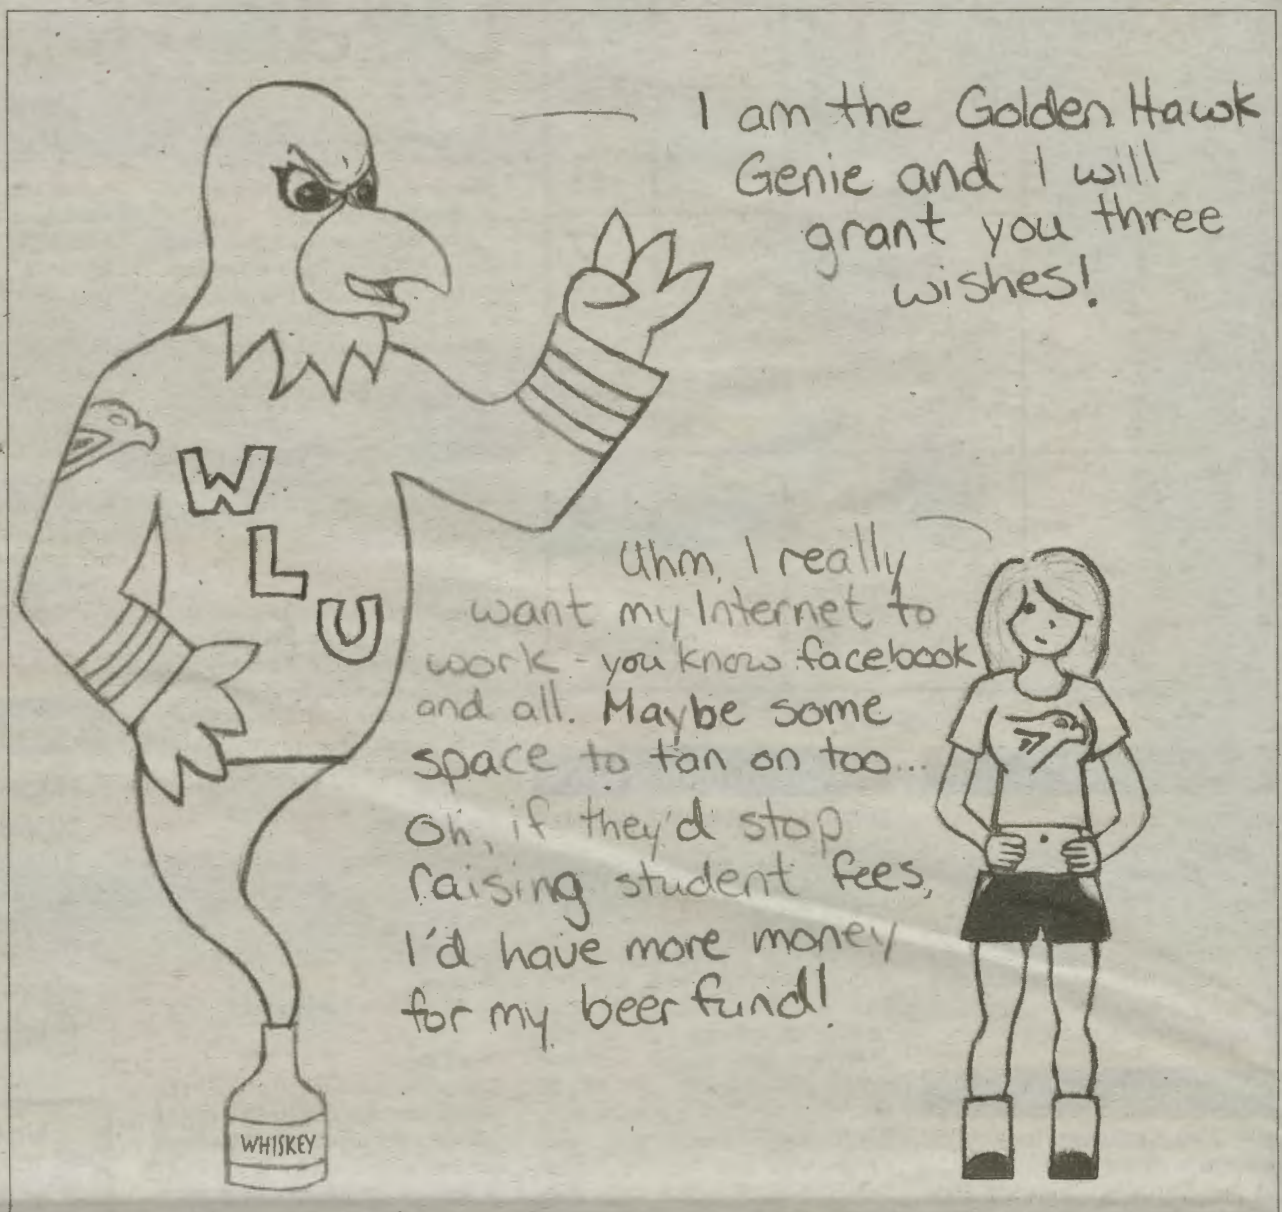 I am the Golden Hawk
Genie and I will
grant you three
wishes!
W
L
U
Uhm, I really
want my Internet to
work - you know facebook
and all. Maybe some
space to tan on too...
Oh, if they'd stop
raising student fees,
I'd have more money
for my beer fund!
WHISKEY